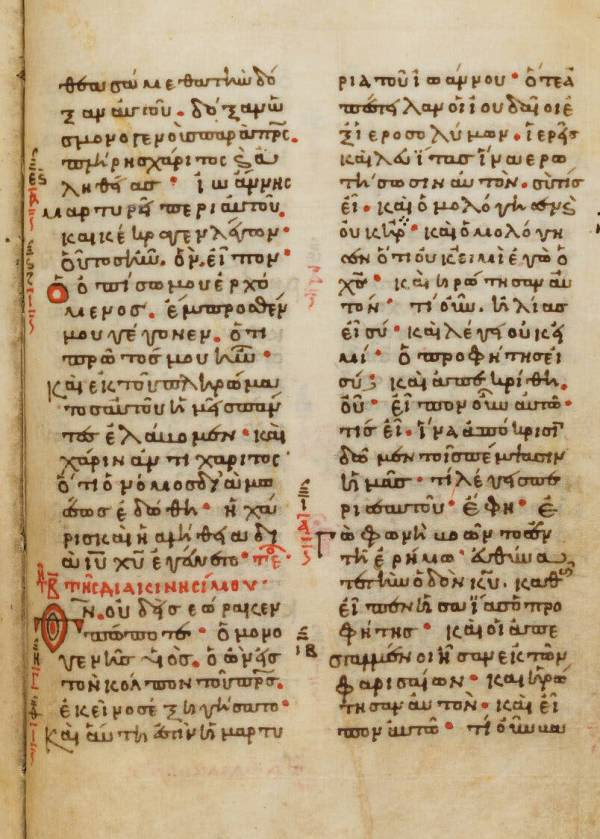 θεασάμεθα τὴν δό
ξαν αὐτοῦ. δόξαν ὡ
ς μονογενοῦς παρὰ πρς.
πλήρης χάριτος ϗ ἀ
ληθείας · ἰωάννης
μαρτυρεῖ περὶ αὐτοῦ.
καὶ κέκραγεν λέγων·
οὗτος ἦν. ὃν εἶπον·
ὁ ὀπίσω μου ἐρχό
μενος. ἔμπροσθέν
μου γέγονεν. ὅτι
πρῶτός μου ἦν·
Καὶ ἐκ τοῦ πληρώμα
τος αὐτοῦ ἡμεῖς πάν
τες ἐλάβομεν · καὶ
χάριν ἀντὶ χάριτος·
ὅτι ὁ νόμος διὰ μω
σέως ἐδόθη · ἡ χά
ρις καὶ ἡ ἀλήθεια δι
ὰ ιυ χυ ἐγένετο·
τῇ Β τῆς διακινησίμου·
Θν. οὐδεὶς ἑώρακεν
πώποτε · ὁ μονο
γενὴς υἱός. ὁ ὢν εἰς
τὸν κόλπον τοῦ πρς.
ἐκεῖνος ἐξηγήσατο·
Καὶ αὕτη ἐστὶν ἡ μαρτυ
ρία τοῦ ἰωάννου · ὅτε ἀ
πέστειλαν οἱ ἰουδαῖοι ἐ
ξ ἱεροσολύμων. ἱερεῖς
καὶ λευΐτας ἵνα ἐρω
τήσωσιν αὐτόν. σὺ τίς
εἶ · καὶ ὡμολόγησεν ϗ
οὐκ ἠρ · καὶ ὡμολόγη
σεν ὅτι οὐκ εἰμὶ ἐγὼ ὁ
χς · καὶ ἠρώτησαν αὐ
τόν · τί οὖν. ἠλίας
εἶ σύ · καὶ λέγει οὐκ εἰ
μί · ὁ προφήτης εἶ
σύ; καὶ ἀπεκρίθη.
οὔ · εἶπον οὖν αὐτῷ·
τίς εἶ · ἵνα ἀπόκρισιν
δῶμεν τοῖς πέμψασιν
ἡμᾶς · τί λέγεις πε
ρὶ σεαυτοῦ · ἔφη · ἐ
γὼ φωνὴ βοῶντος ἐν
τῇ ἐρήμῳ · εὐθύνα
τε τὴν ὁδὸν κυ. καθὼς
εἶπεν ἡσαΐας ὁ προ
φήτης · καὶ οἱ ἀπε
σταλμένοι ἦσαν ἐκ τῶν
φαρισαίων · καὶ ἠρώ
τησαν αὐτὸν · καὶ εἶ
πον αὐτῷ · τί οὖν βα